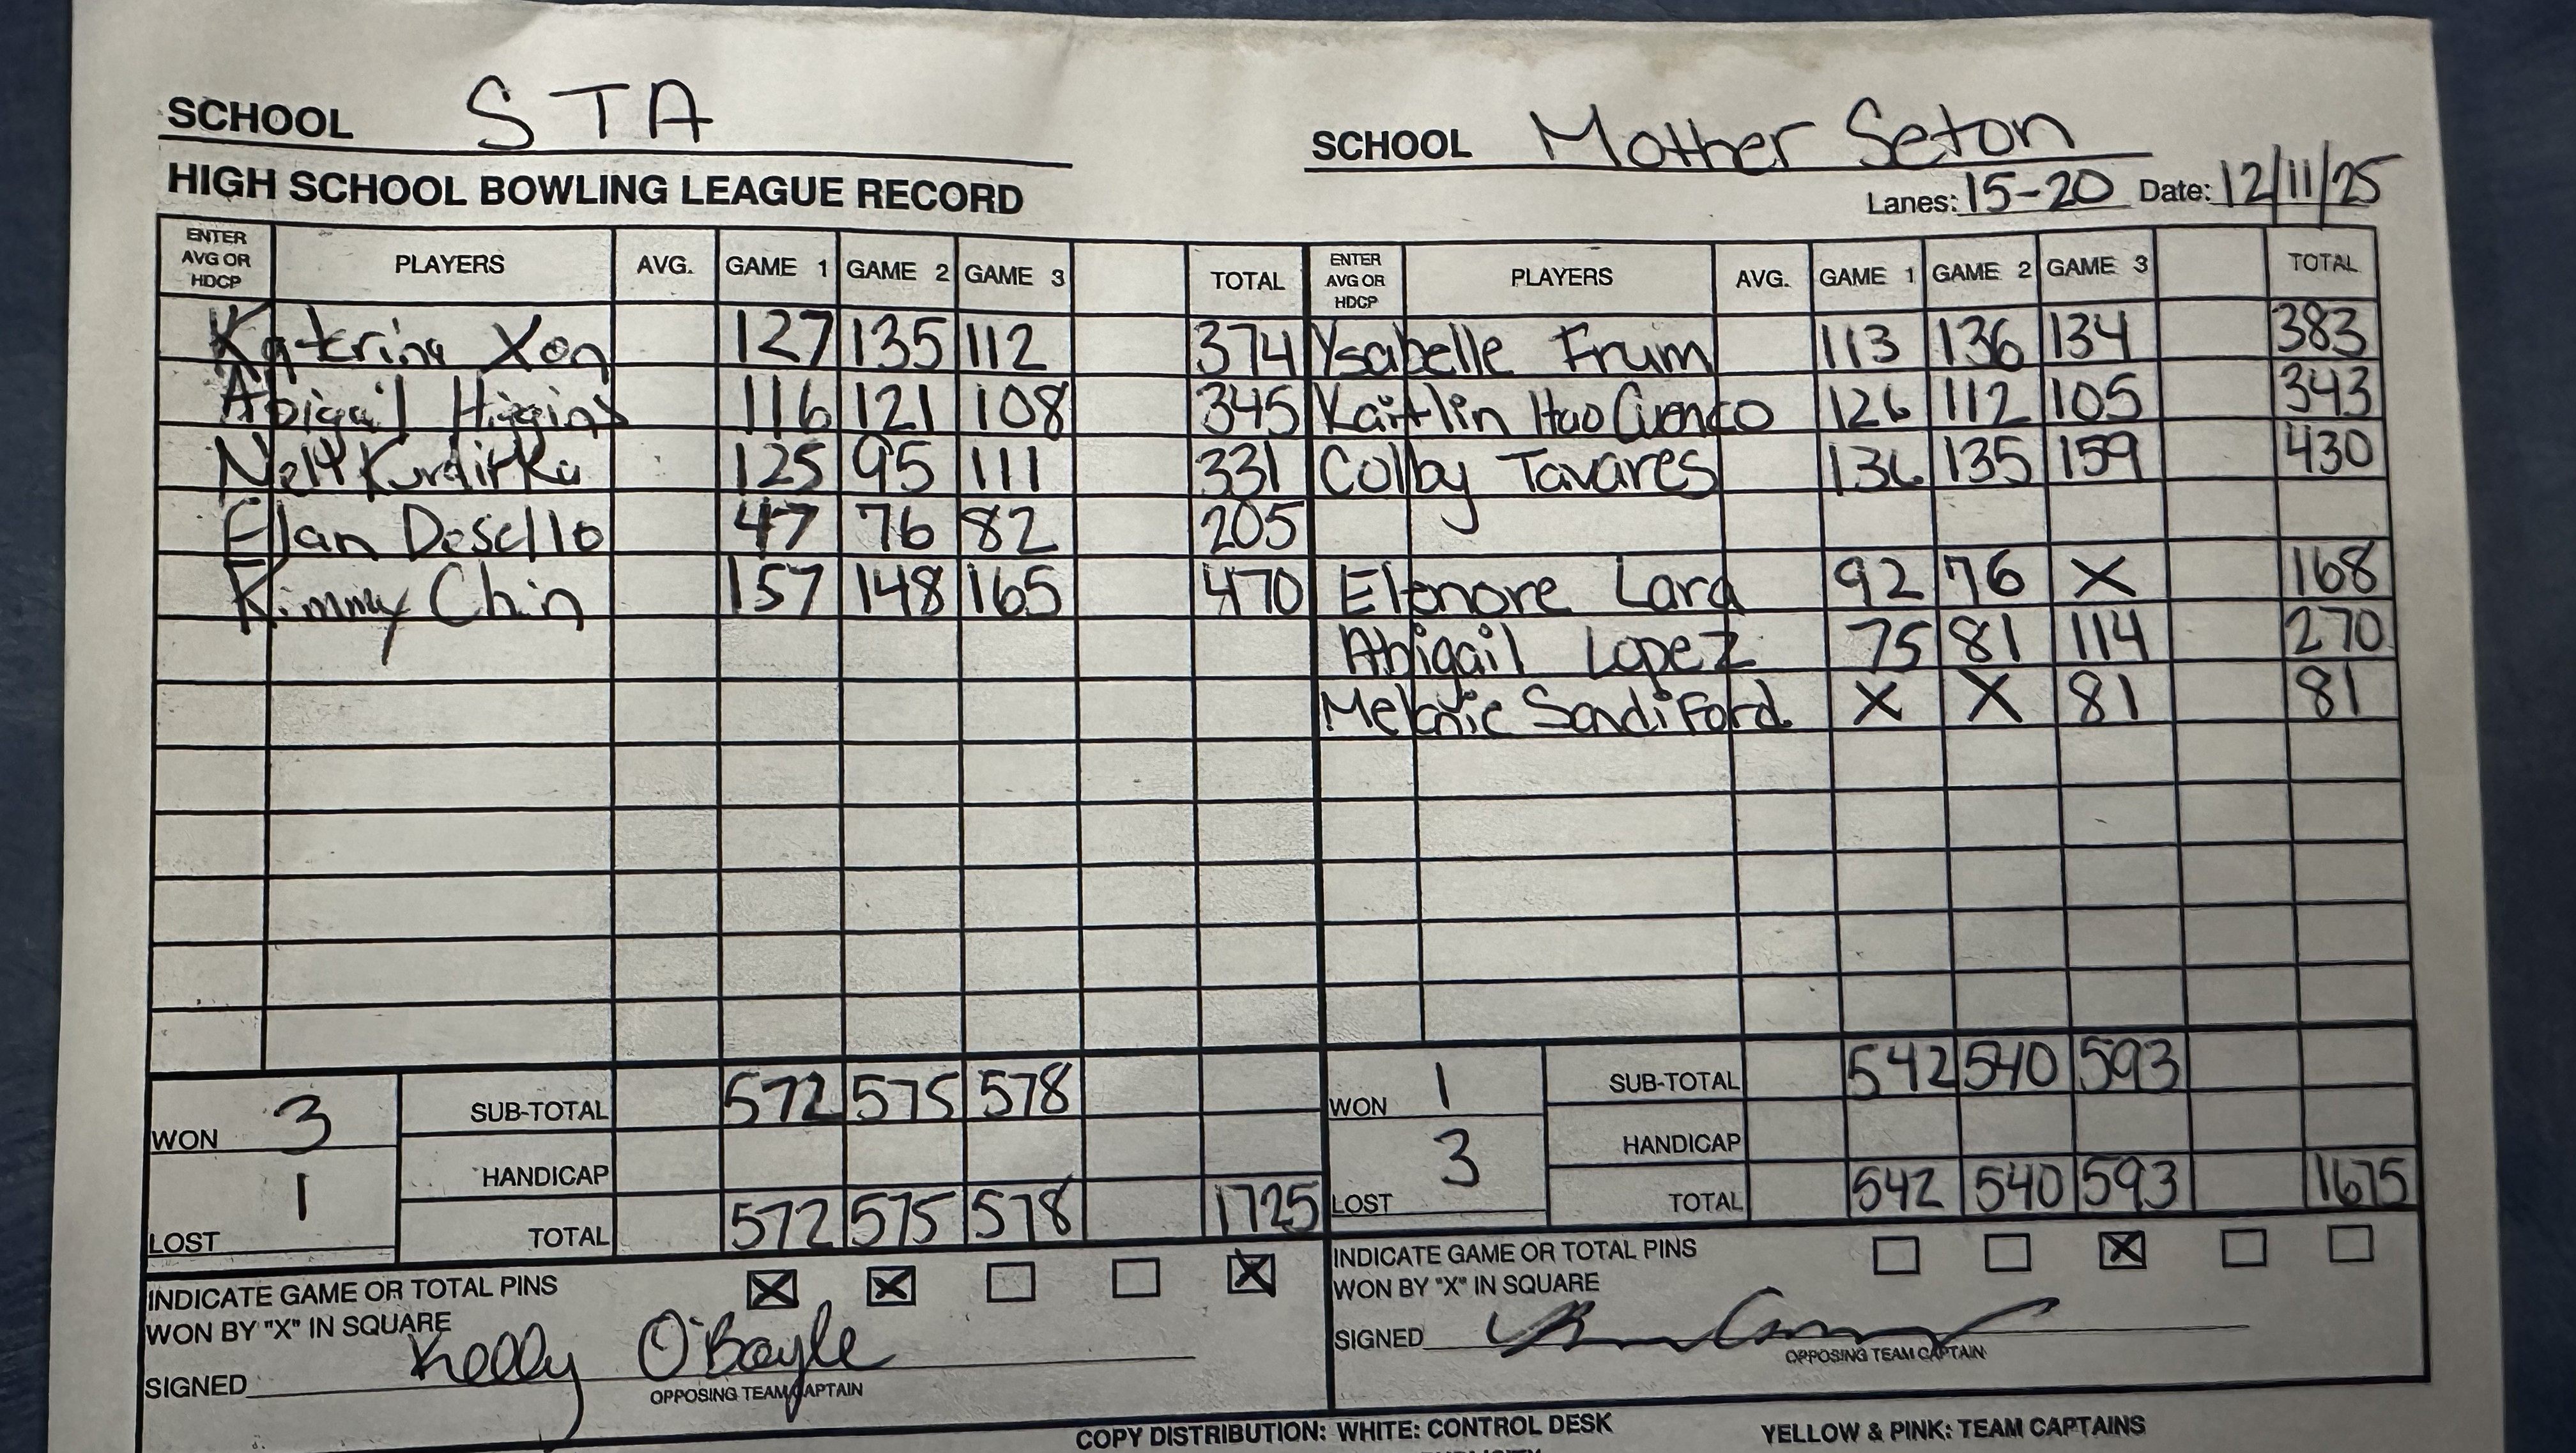 SCHOOL STA
SCHOOL Mother Seton
HIGH SCHOOL BOWLING LEAGUE RECORD
Lanes: 15-20 Date: 12/11/25
ENTER AVG OR HDCP PLAYERS AVG. GAME 1 GAME 2 GAME 3 TOTAL ENTER AVG OR HDCP PLAYERS AVG. GAME 1 GAME 2 GAME 3 TOTAL
Katerina Xon 127 135 112 374 Ysabelle Frum 113 136 134 383
Abigail Higgins 116 121 108 345 Kaitlin Hao Cuenco 126 112 105 343
125 95 111 331 Colby Tavares 136 135 159 430
Elan Desello 47 76 82 205
Kimmy Chin 157 148 165 470 Elenore Lara 92 76 X 168
Abigail Lopez 75 81 114 270
Melanie Sandiford X X 81 81
WON 3 SUB-TOTAL 572 575 578 WON 1 SUB-TOTAL 542 540 593
HANDICAP HANDICAP
LOST 1 TOTAL 572 575 578 1725 LOST 3 TOTAL 542 540 593 1675
INDICATE GAME OR TOTAL PINS X X X INDICATE GAME OR TOTAL PINS X
WON BY "X" IN SQUARE WON BY "X" IN SQUARE
SIGNED Kelly O'Boyle SIGNED
OPPOSING TEAM CAPTAIN OPPOSING TEAM CAPTAIN
COPY DISTRIBUTION: WHITE: CONTROL DESK YELLOW & PINK: TEAM CAPTAINS